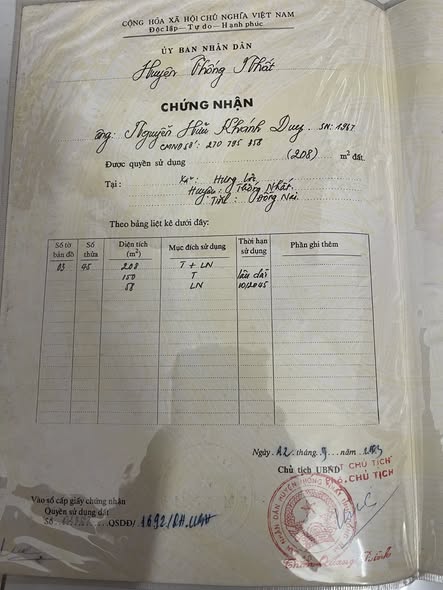 CỘNG HÒA XÃ HỘI CHỦ NGHĨA VIỆT NAM
Độc lập — Tự do — Hạnh phúc
ỦY BAN NHÂN DÂN
Huyện Thống Nhất
CHỨNG NHẬN
ông: Nguyễn Hữu Khánh Duy SN: 1967
CMND số: 270 795 858
Được quyền sử dụng (208) m² đất.
Tại: Xã: Hưng Lộc
Huyện: Thống Nhất.
Tỉnh: Đồng Nai.
Theo bảng liệt kê dưới đây:
Số tờ bản đồ Số thửa Diện tích (m²) Mục đích sử dụng Thời hạn sử dụng Phần ghi thêm
03 45 208 T + LN
150 T lâu dài
58 LN 10/2045
Ngày 12 tháng 9 năm
Chủ tịch UBND T CHỦ TỊCH
PHÓ CHỦ TỊCH
Vào sổ cấp giấy chứng nhận
Quyền sử dụng đất
Số QSDĐ/ 1692/